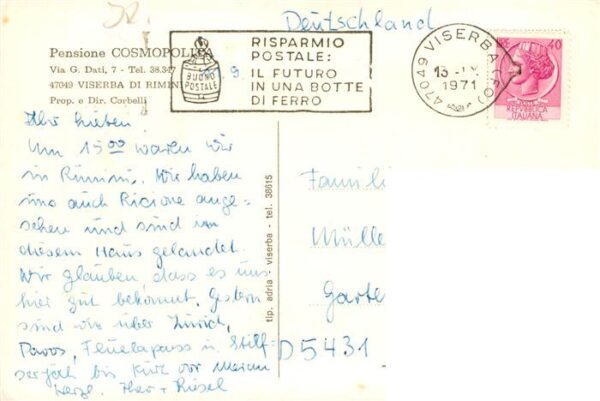 Deutschland
Pensione COSMOPOLITA
Via G. Dati, 7 - Tel. 38.347
47049 VISERBA DI RIMINI
Prop. e Dir. Corbelli
BUONO
POSTALE
RISPARMIO
POSTALE:
IL FUTURO
IN UNA BOTTE
DI FERRO
47049 VISERBA (FO)
1971
40
REPVBBLICA
ITALIANA
Ihr Lieben!
Um 15 00 waren wir
in Rimini. Wir haben
uns auch Riccione ange=
sehen und sind in
diesem Haus gelandet.
Wir glauben, dass es uns
hier gut bekommt. Gestern
sind wir über Zürich,
Davos, Flüelapass u. Stilf=
serjoch bis kurz vor Meran
Herzl.
tip. adria viserba - tel. 38615
Famili
Mülle
Garte
D5431